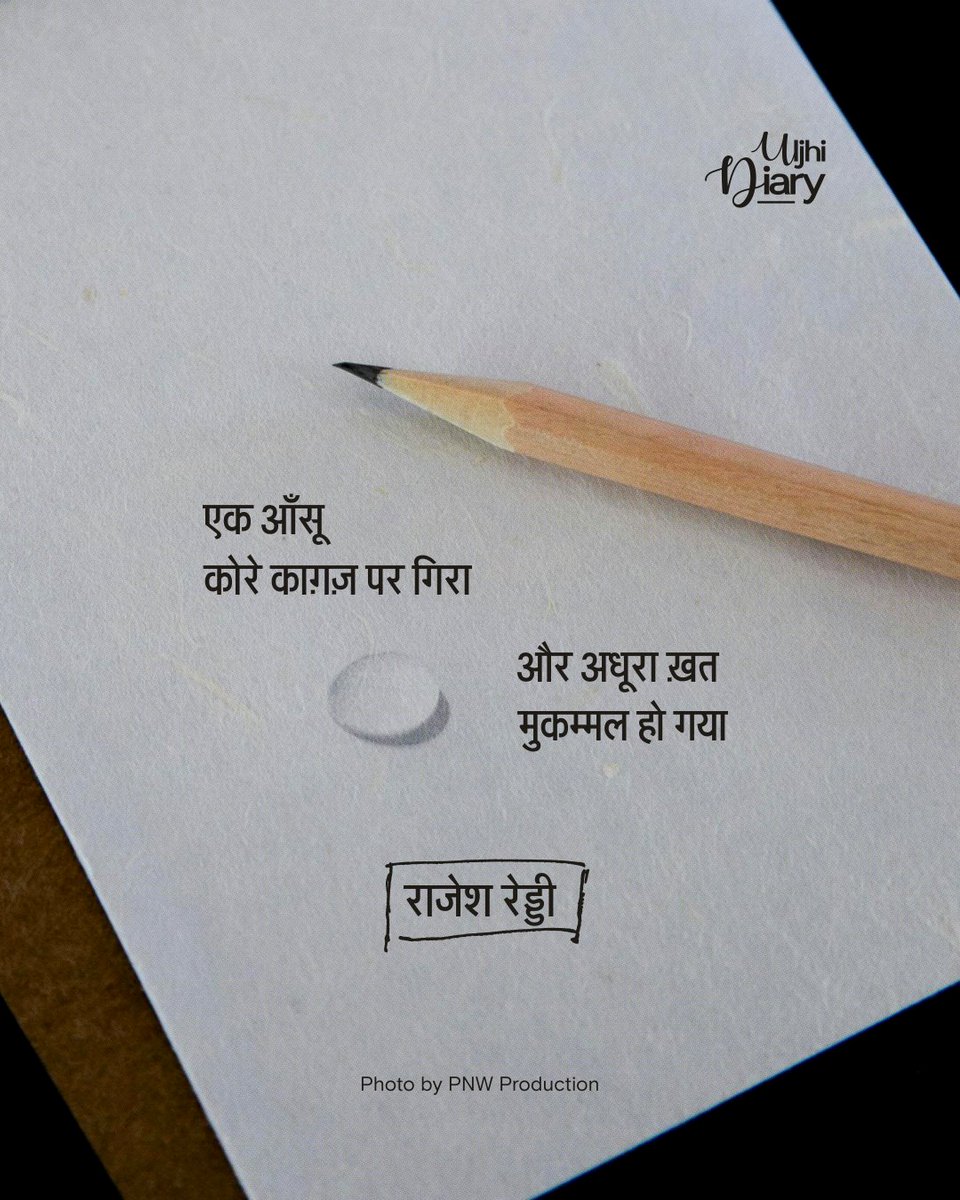 Uljhi
Diary
एक आँसू
कोरे काग़ज़ पर गिरा
और अधूरा ख़त
मुकम्मल हो गया
राजेश रेड्डी
Photo by PNW Production